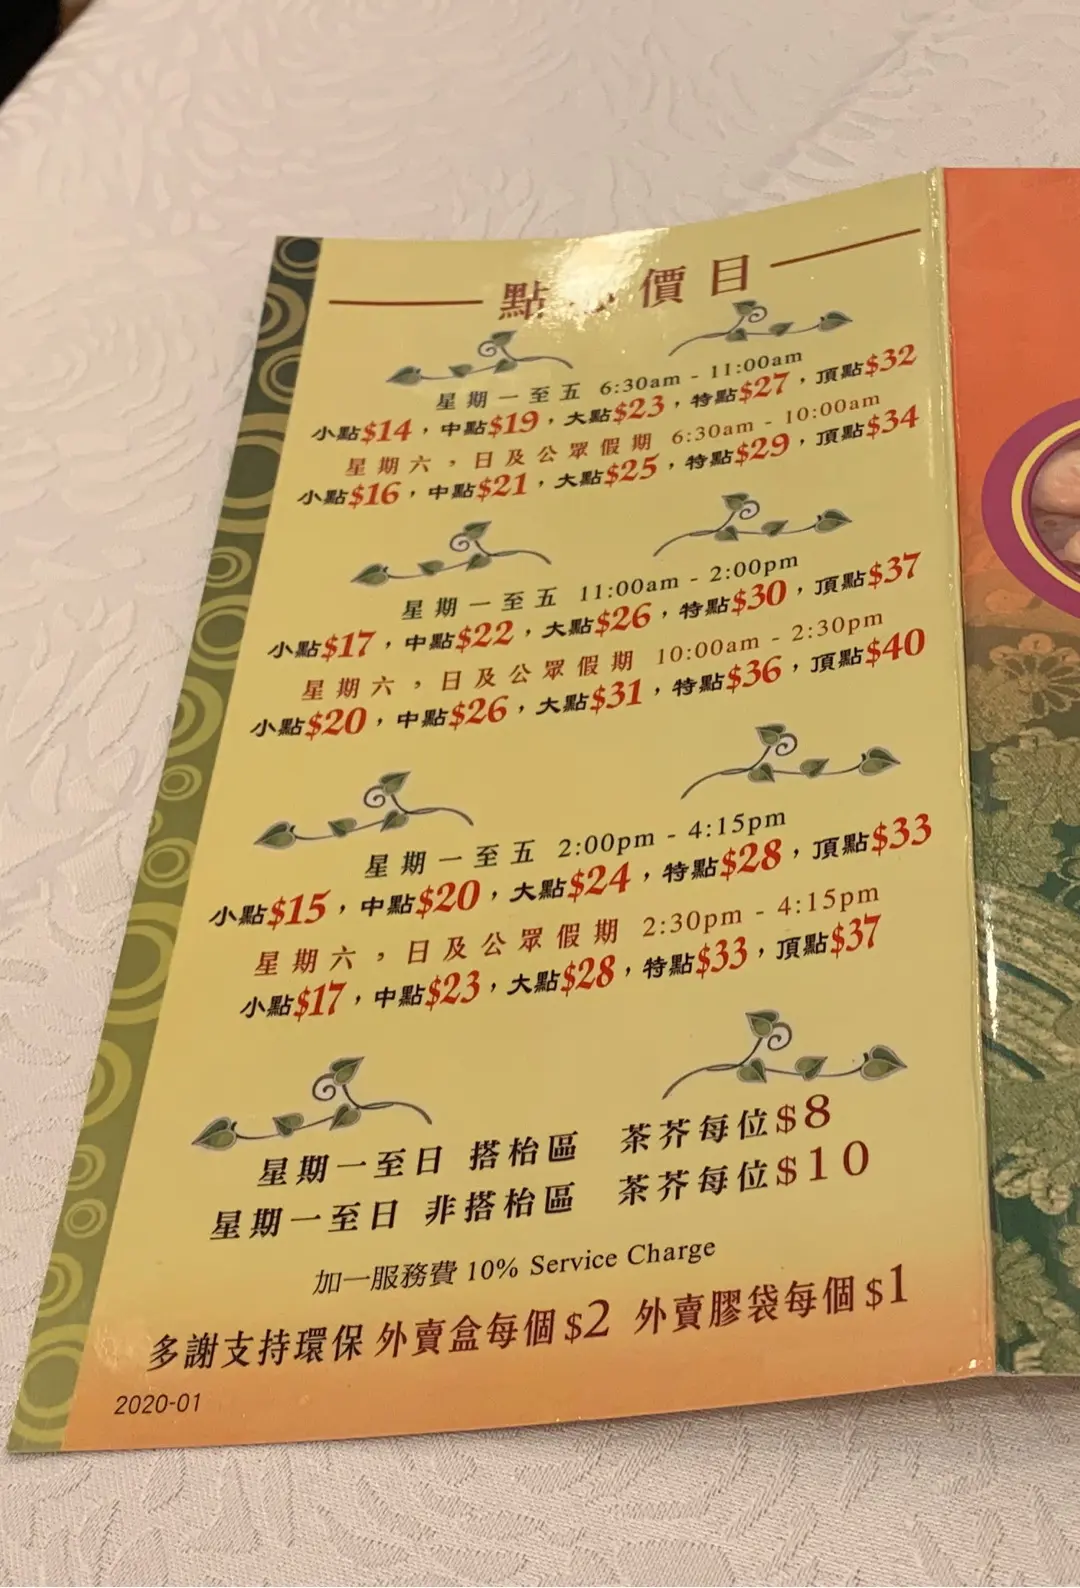 點心價目
星期一至五 6:30am - 11:00am
小點$14，中點$19，大點$23，特點$27，頂點$32
星期六，日及公眾假期 6:30am - 10:00am
小點$16，中點$21，大點$25，特點$29，頂點$34
星期一至五 11:00am - 2:00pm
小點$17，中點$22，大點$26，特點$30，頂點$37
星期六，日及公眾假期 10:00am - 2:30pm
小點$20，中點$26，大點$31，特點$36，頂點$40
星期一至五 2:00pm - 4:15pm
小點$15，中點$20，大點$24，特點$28，頂點$33
星期六，日及公眾假期 2:30pm - 4:15pm
小點$17，中點$23，大點$28，特點$33，頂點$37
星期一至日 搭枱區 茶芥每位$8
星期一至日 非搭枱區 茶芥每位$10
加一服務費 10% Service Charge
多謝支持環保 外賣盒每個$2 外賣膠袋每個$1
2020-01